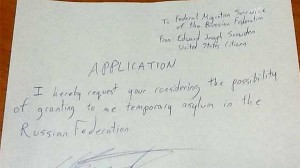 To Federal Migration Service
of the Russian Federation
From Edward Joseph Snowden
United States Citizen
APPLICATION
I hereby request your considering the possibility
of granting to me temporary asylum in the
Russian Federation